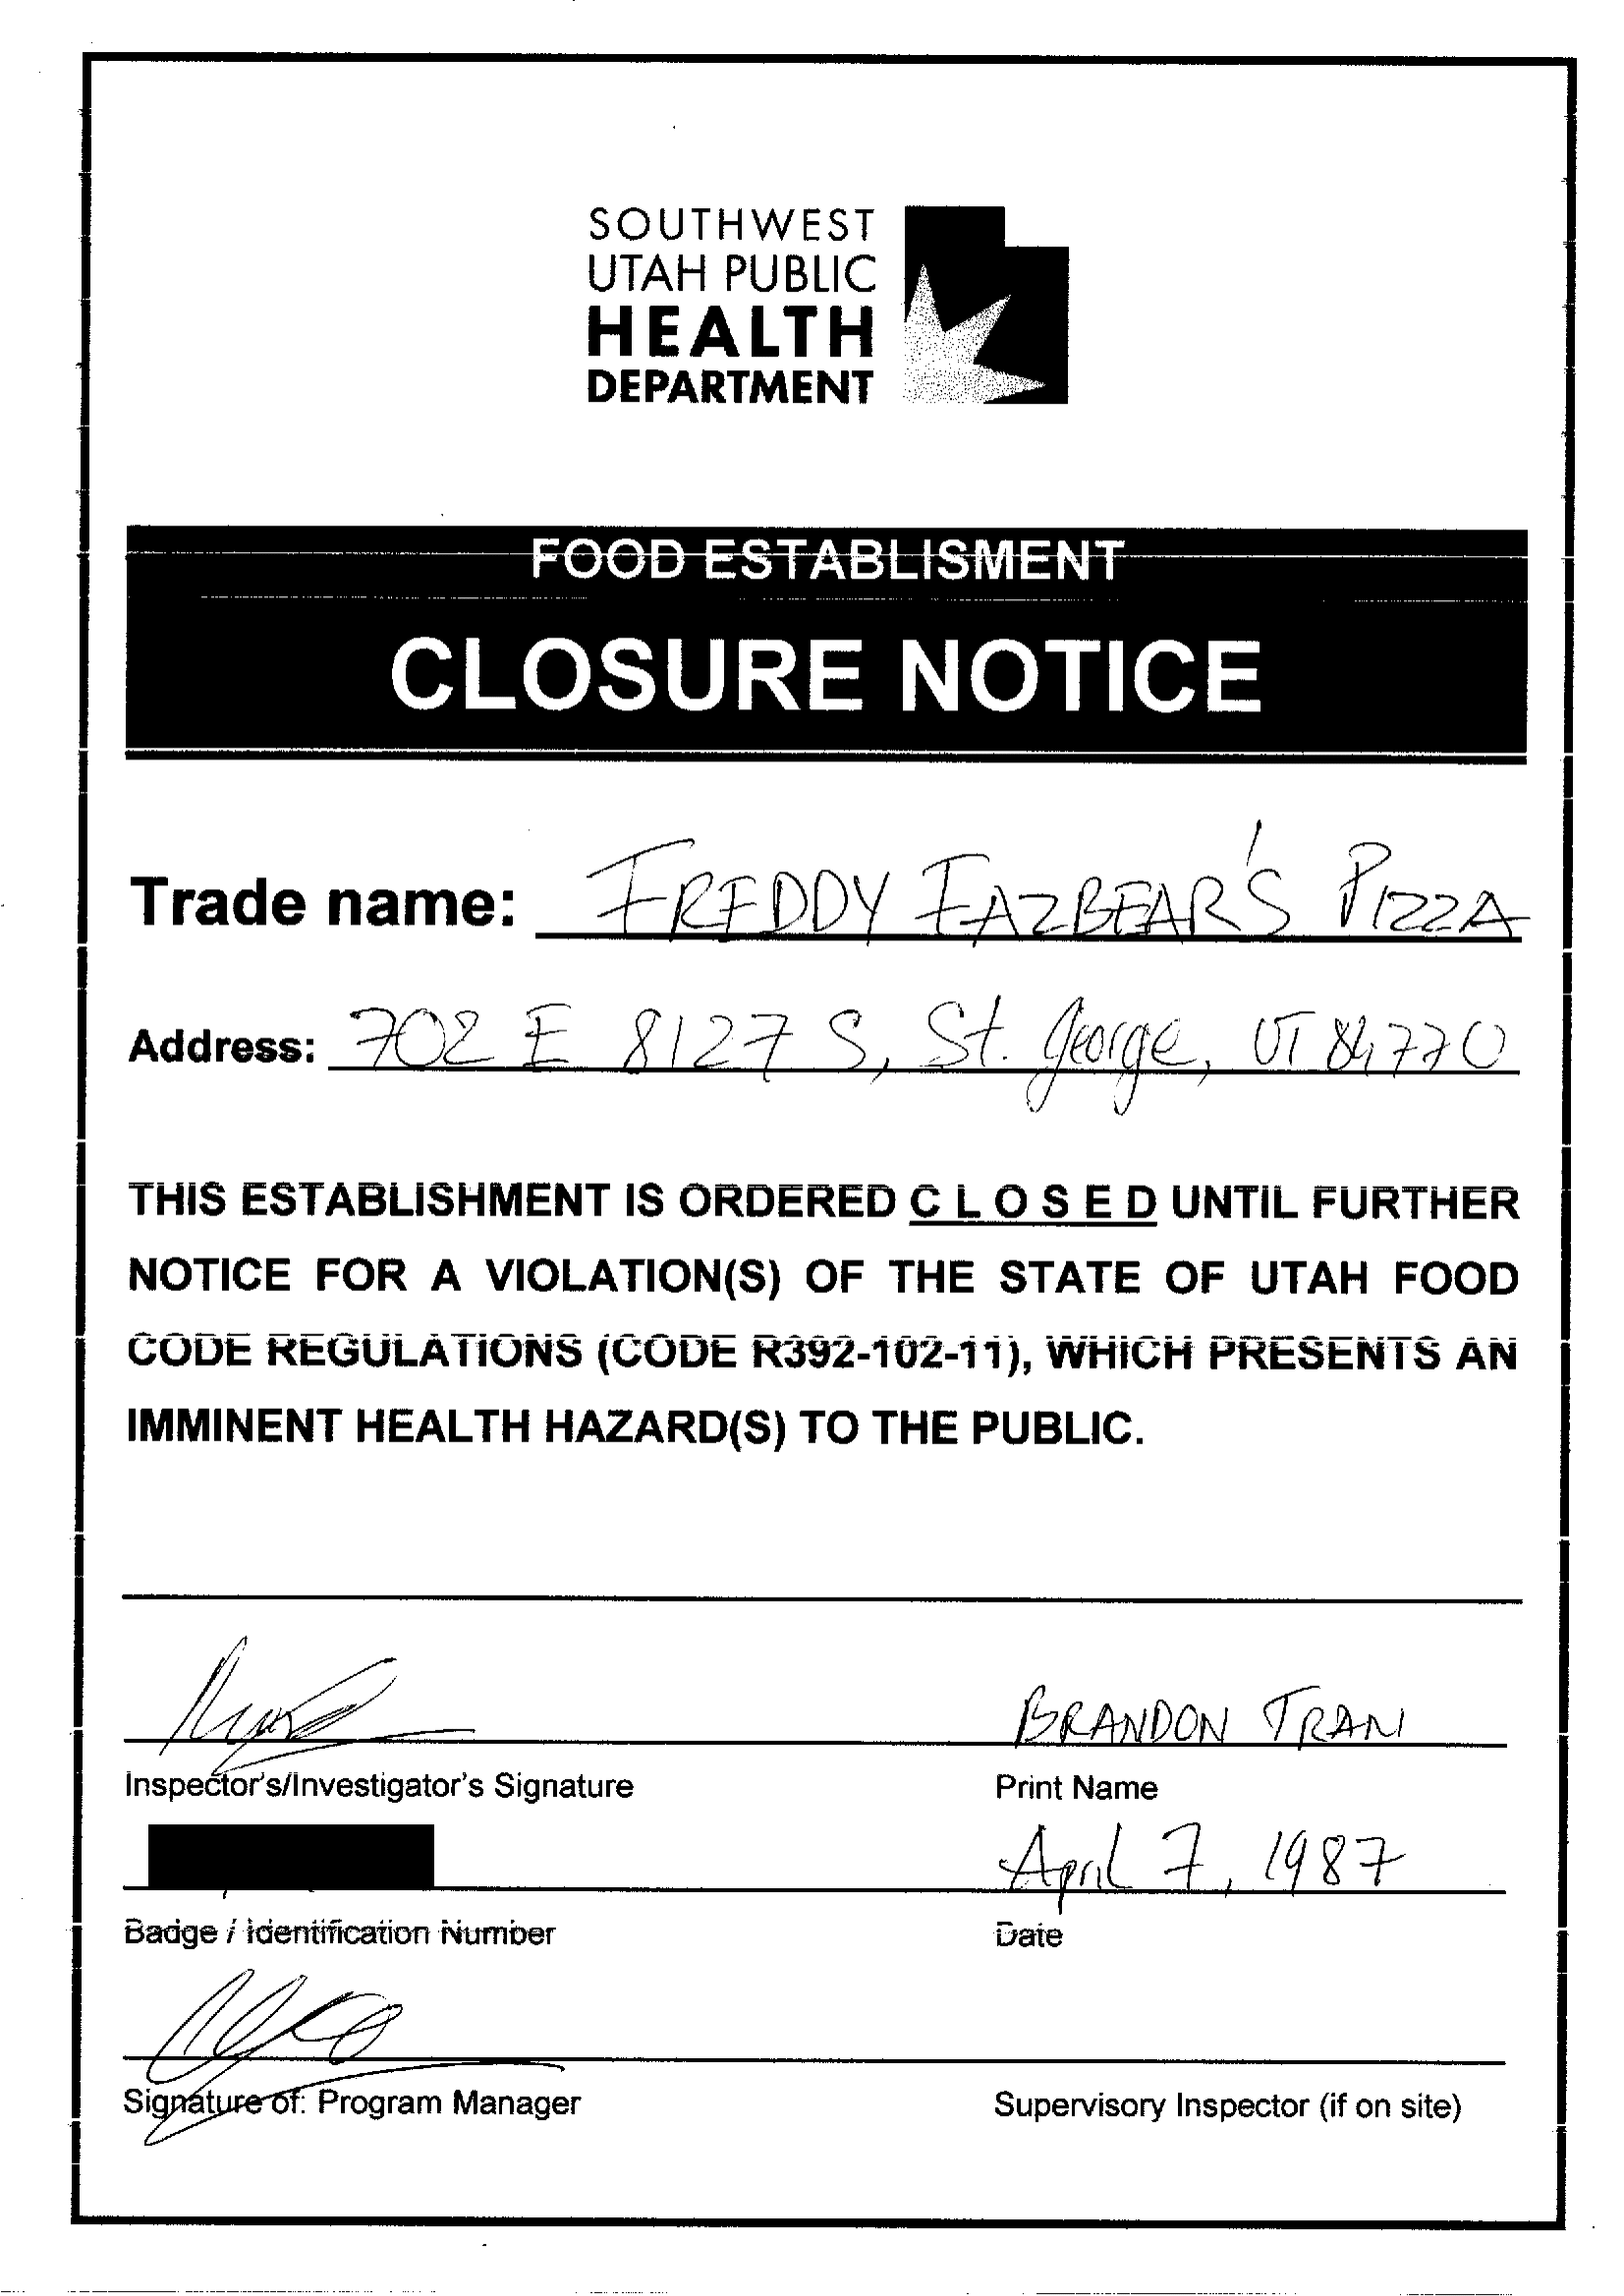 SOUTHWEST
UTAH PUBLIC
HEALTH
DEPARTMENT
FOOD ESTABLISMENT
CLOSURE NOTICE
Trade name: FREDDY FAZBEAR'S PIZZA
Address: 702 E 8127 S, St. George, UT 84770
THIS ESTABLISHMENT IS ORDERED C L O S E D UNTIL FURTHER
NOTICE FOR A VIOLATION(S) OF THE STATE OF UTAH FOOD
CODE REGULATIONS (CODE R392-102-11), WHICH PRESENTS AN
IMMINENT HEALTH HAZARD(S) TO THE PUBLIC.
BRANDON TRAN
Inspector's/Investigator's Signature Print Name
April 7, 1987
Badge / Identification Number Date
Signature of: Program Manager Supervisory Inspector (if on site)